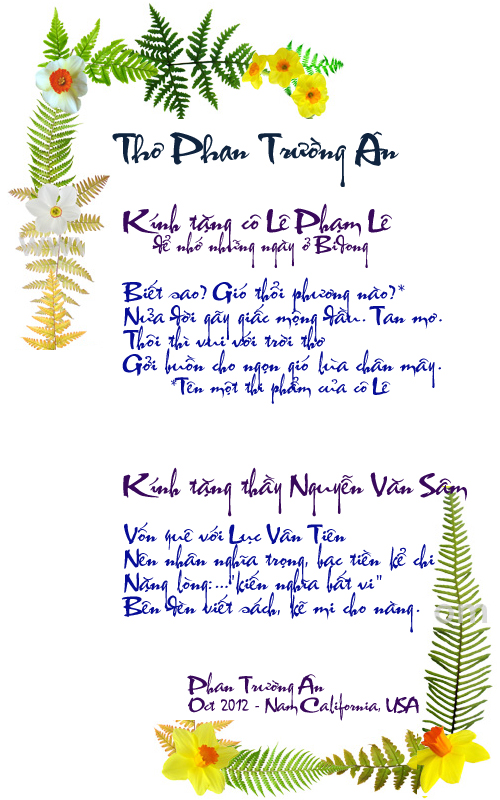 Thơ Phan Trường Ân
Kính tặng cô Lê Phạm Lê
để nhớ những ngày ở Bidong
Biết sao? Gió thổi phương nào?*
Nửa đời gãy giấc mộng đầu. Tan mơ.
Thôi thì vui với trời thơ
Gởi buồn cho ngọn gió lùa chân mây.
*Tên một thi phẩm của cô Lê
Kính tặng thầy Nguyễn Văn Sâm
Vốn quê với Lục Vân Tiên
Nên nhân nghĩa trọng, bạc tiền kể chi
Nặng lòng:..."kiến nghĩa bất vi"
Bên đèn viết sách, kẽ mi cho nàng.
Phan Trường Ân
Oct 2012 - Nam California, USA